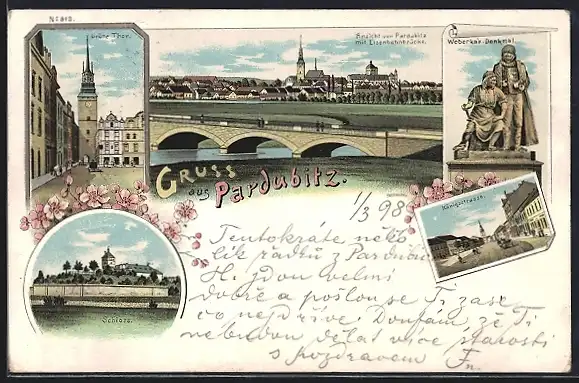 No 813.
Grüne Thor.
Ansicht von Pardubitz
mit Eisenbahnbrücke.
Weberkar-Denkmal.
Gruss
aus Pardubitz.
Königsstrasse.
Schloss.
1/3 98
Tentokráte něko
lik řádků z Pardubic
velmi
dobře a pošlou se Ti zase
co nejdříve. Doufám, že Ti
nebudou dělat více starosti
s pozdravem